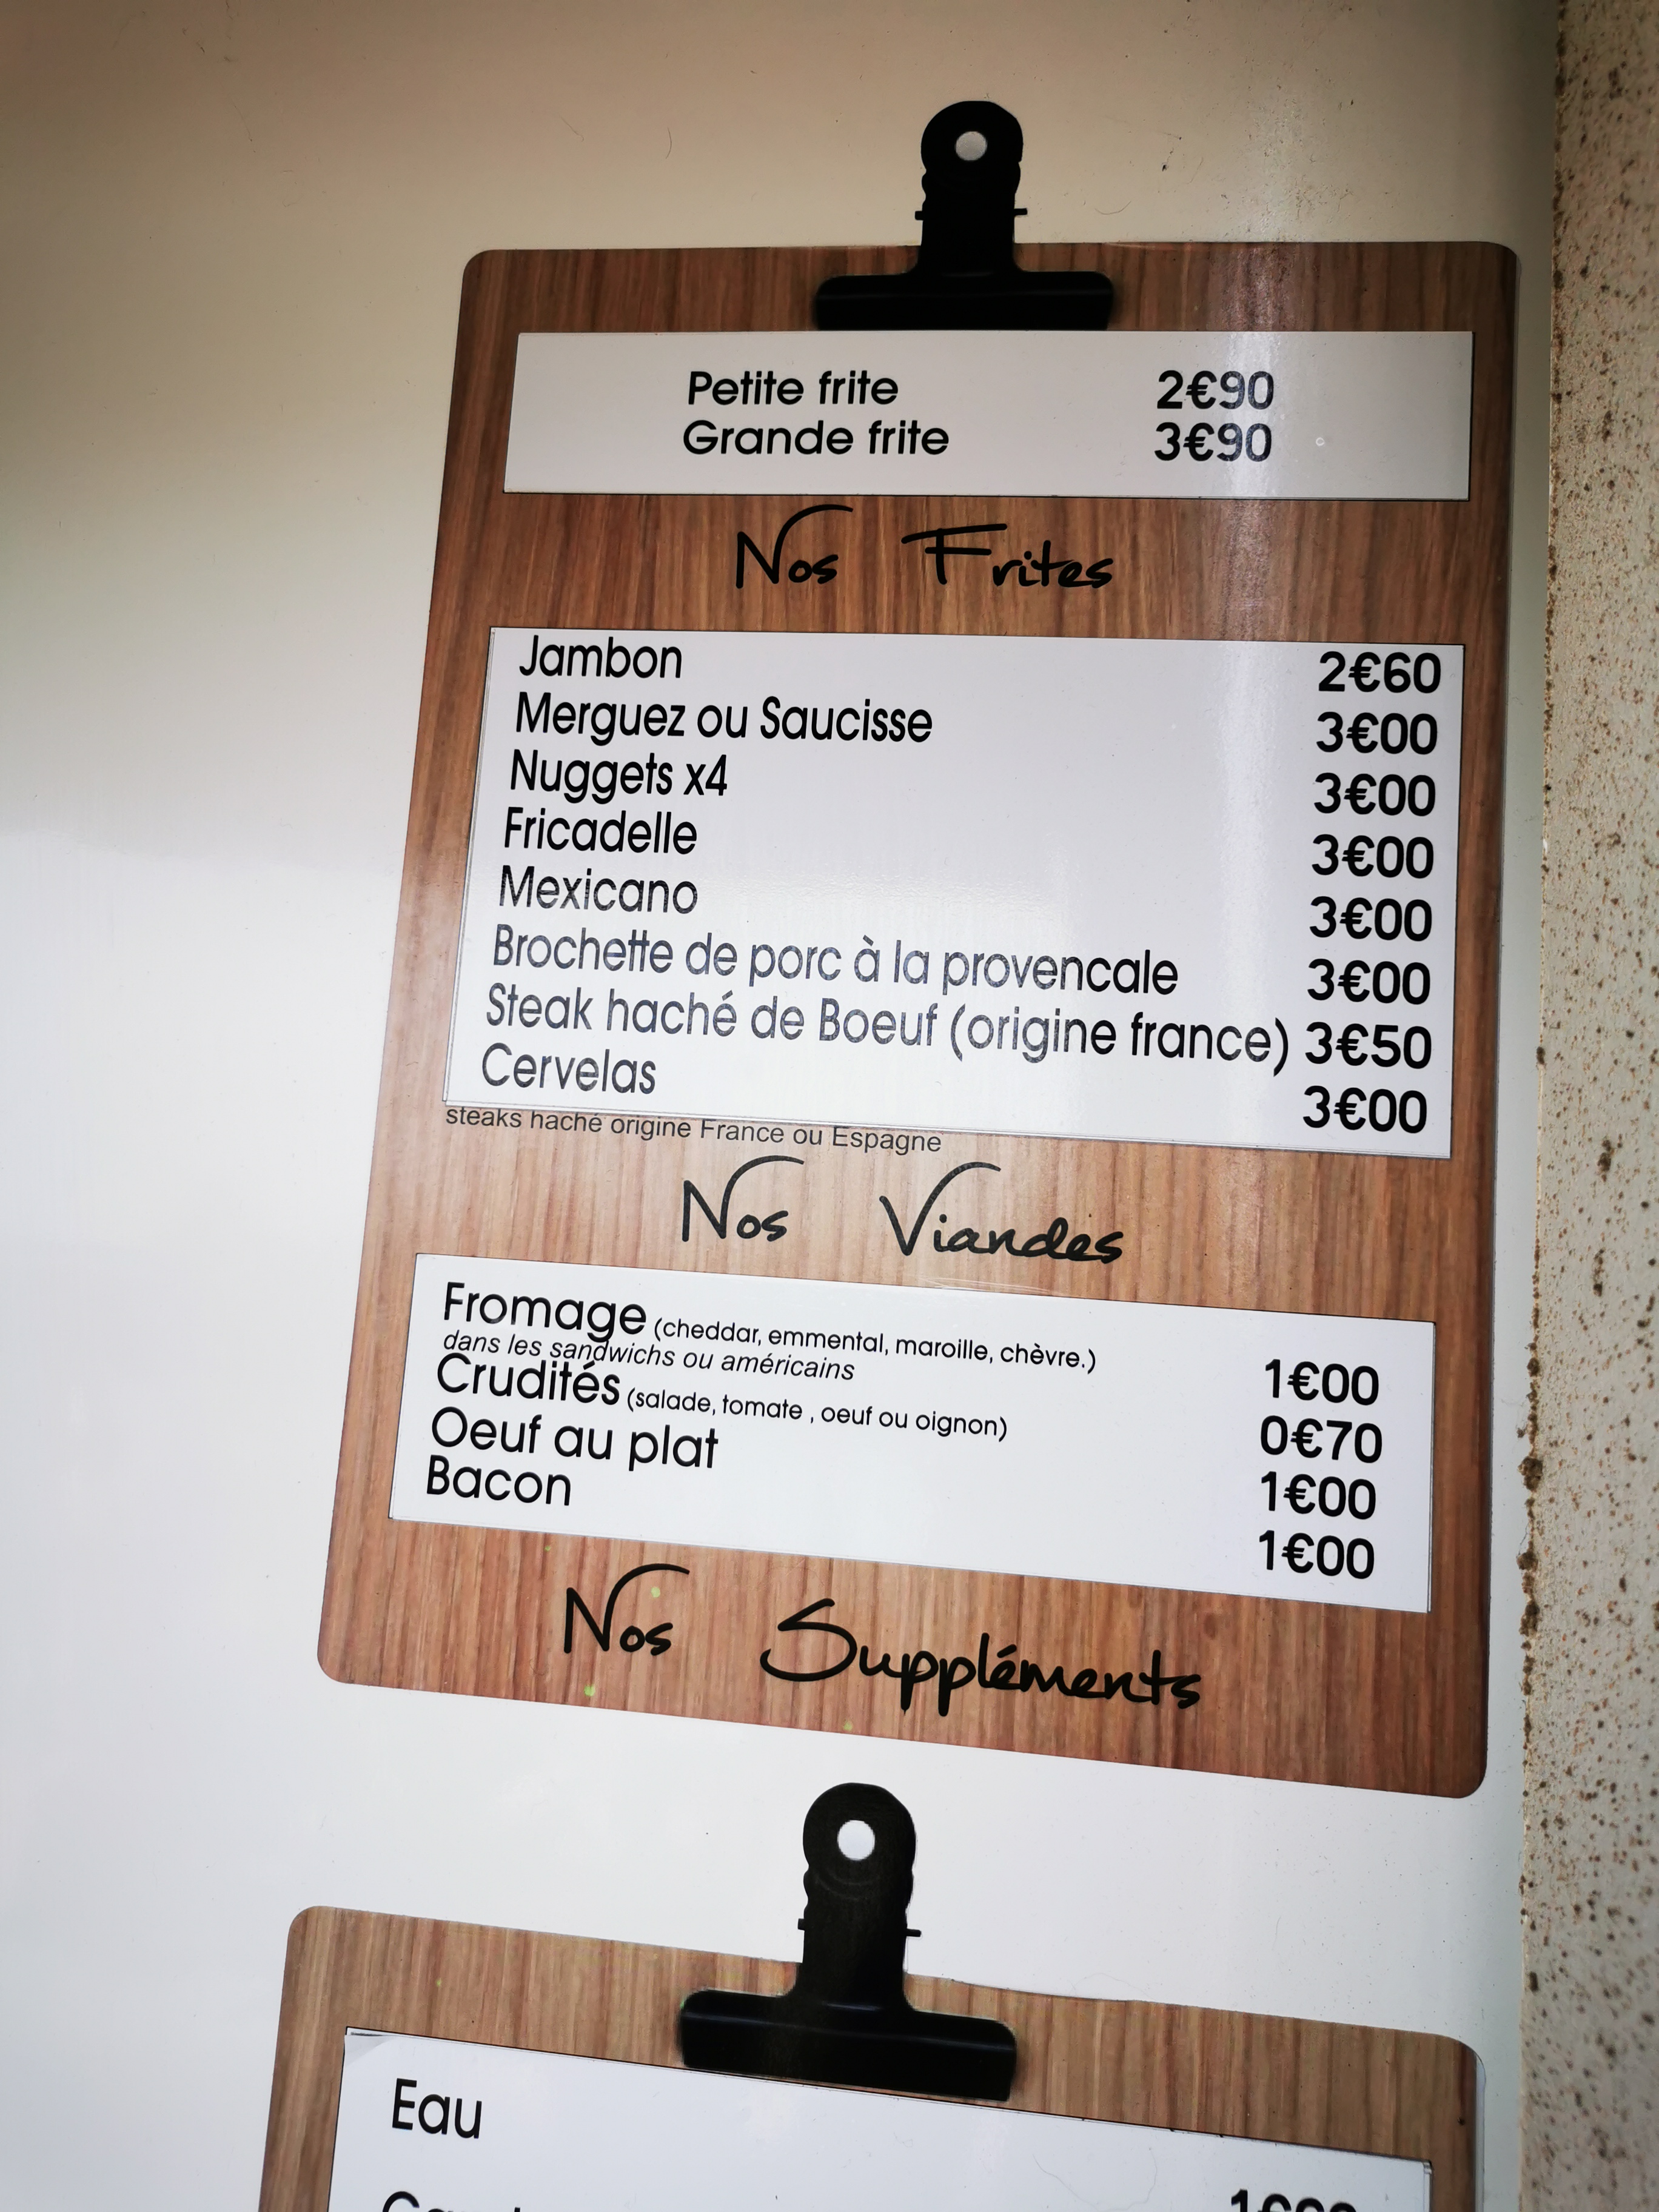 Petite frite 2€90
Grande frite 3€90
Nos Frites
Jambon 2€60
Merguez ou Saucisse 3€00
Nuggets x4 3€00
Fricadelle 3€00
Mexicano 3€00
Brochette de porc à la provencale 3€00
Steak haché de Boeuf (origine france) 3€50
Cervelas 3€00
steaks haché origine France ou Espagne
Nos Viandes
Fromage (cheddar, emmental, maroille, chèvre.) 1€00
dans les sandwichs ou américains
Crudités (salade, tomate , oeuf ou oignon) 0€70
Oeuf au plat 1€00
Bacon 1€00
Nos Suppléments
Eau